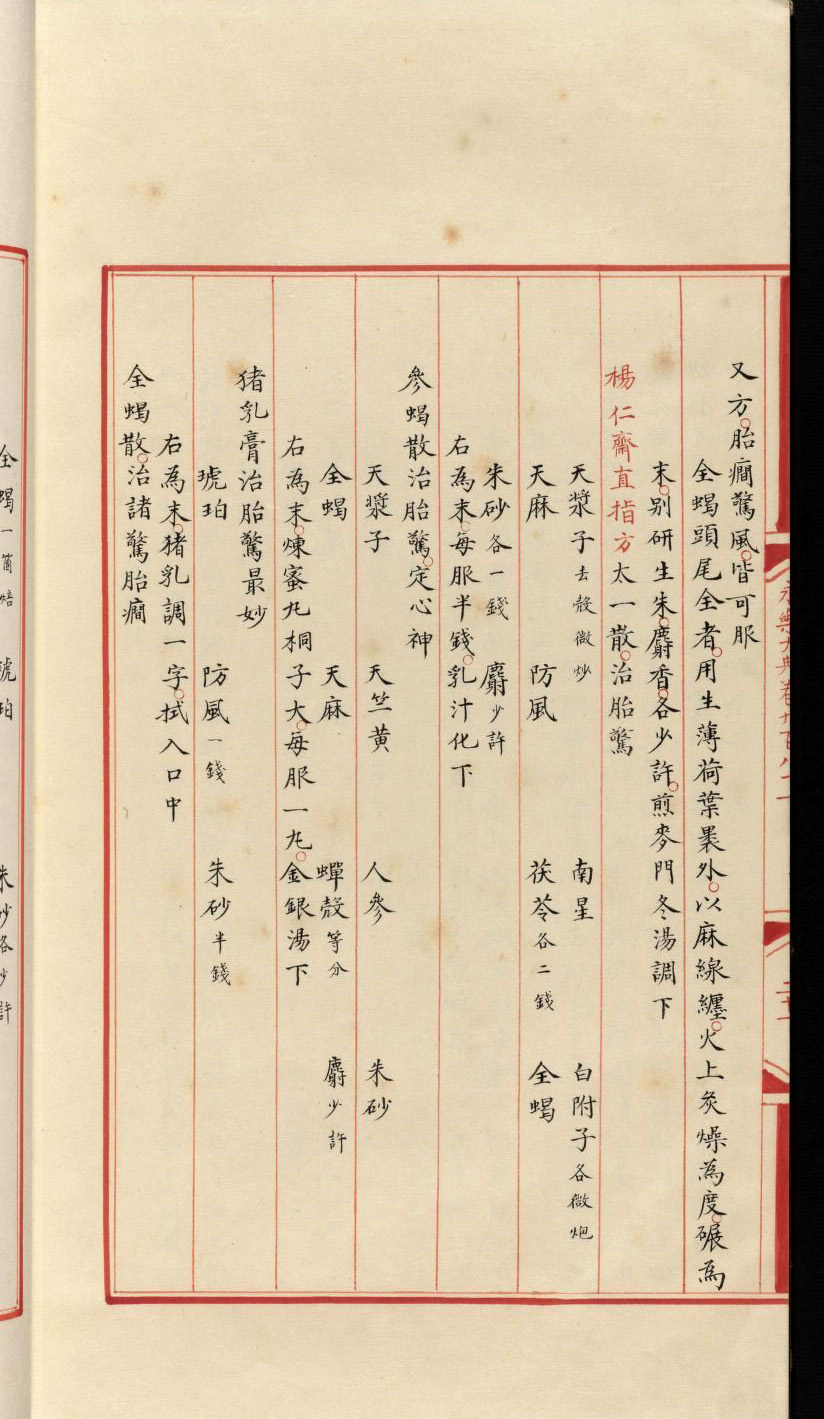 又方。胎癎驚風。皆可服
全蝎頭尾全者。用生薄荷葉褁外。以麻線纏。火上炙燥為度。碾為
末。别研生朱。麝香。各少許。煎麥門冬湯調下
楊仁齋直指方太一散。治胎驚
天漿子去殼微炒 南星 白附子各微炮
天麻 防風 茯苓各二錢 全蝎
朱砂各一錢 麝少許
右為末。每服半錢。乳汁化下
參蝎散治胎驚。定心神
天漿子 天竺黄 人參 朱砂
全蝎 天麻 蟬殼等分 麝少許
右為末。煉蜜丸桐子大。每服一丸。金銀湯下
猪乳膏治胎驚最妙
琥珀 防風一錢 朱砂半錢
右為末。猪乳調一字。拭入口中
全蝎散。治諸驚胎癎
全蝎一箇焙 琥珀 朱砂各少許